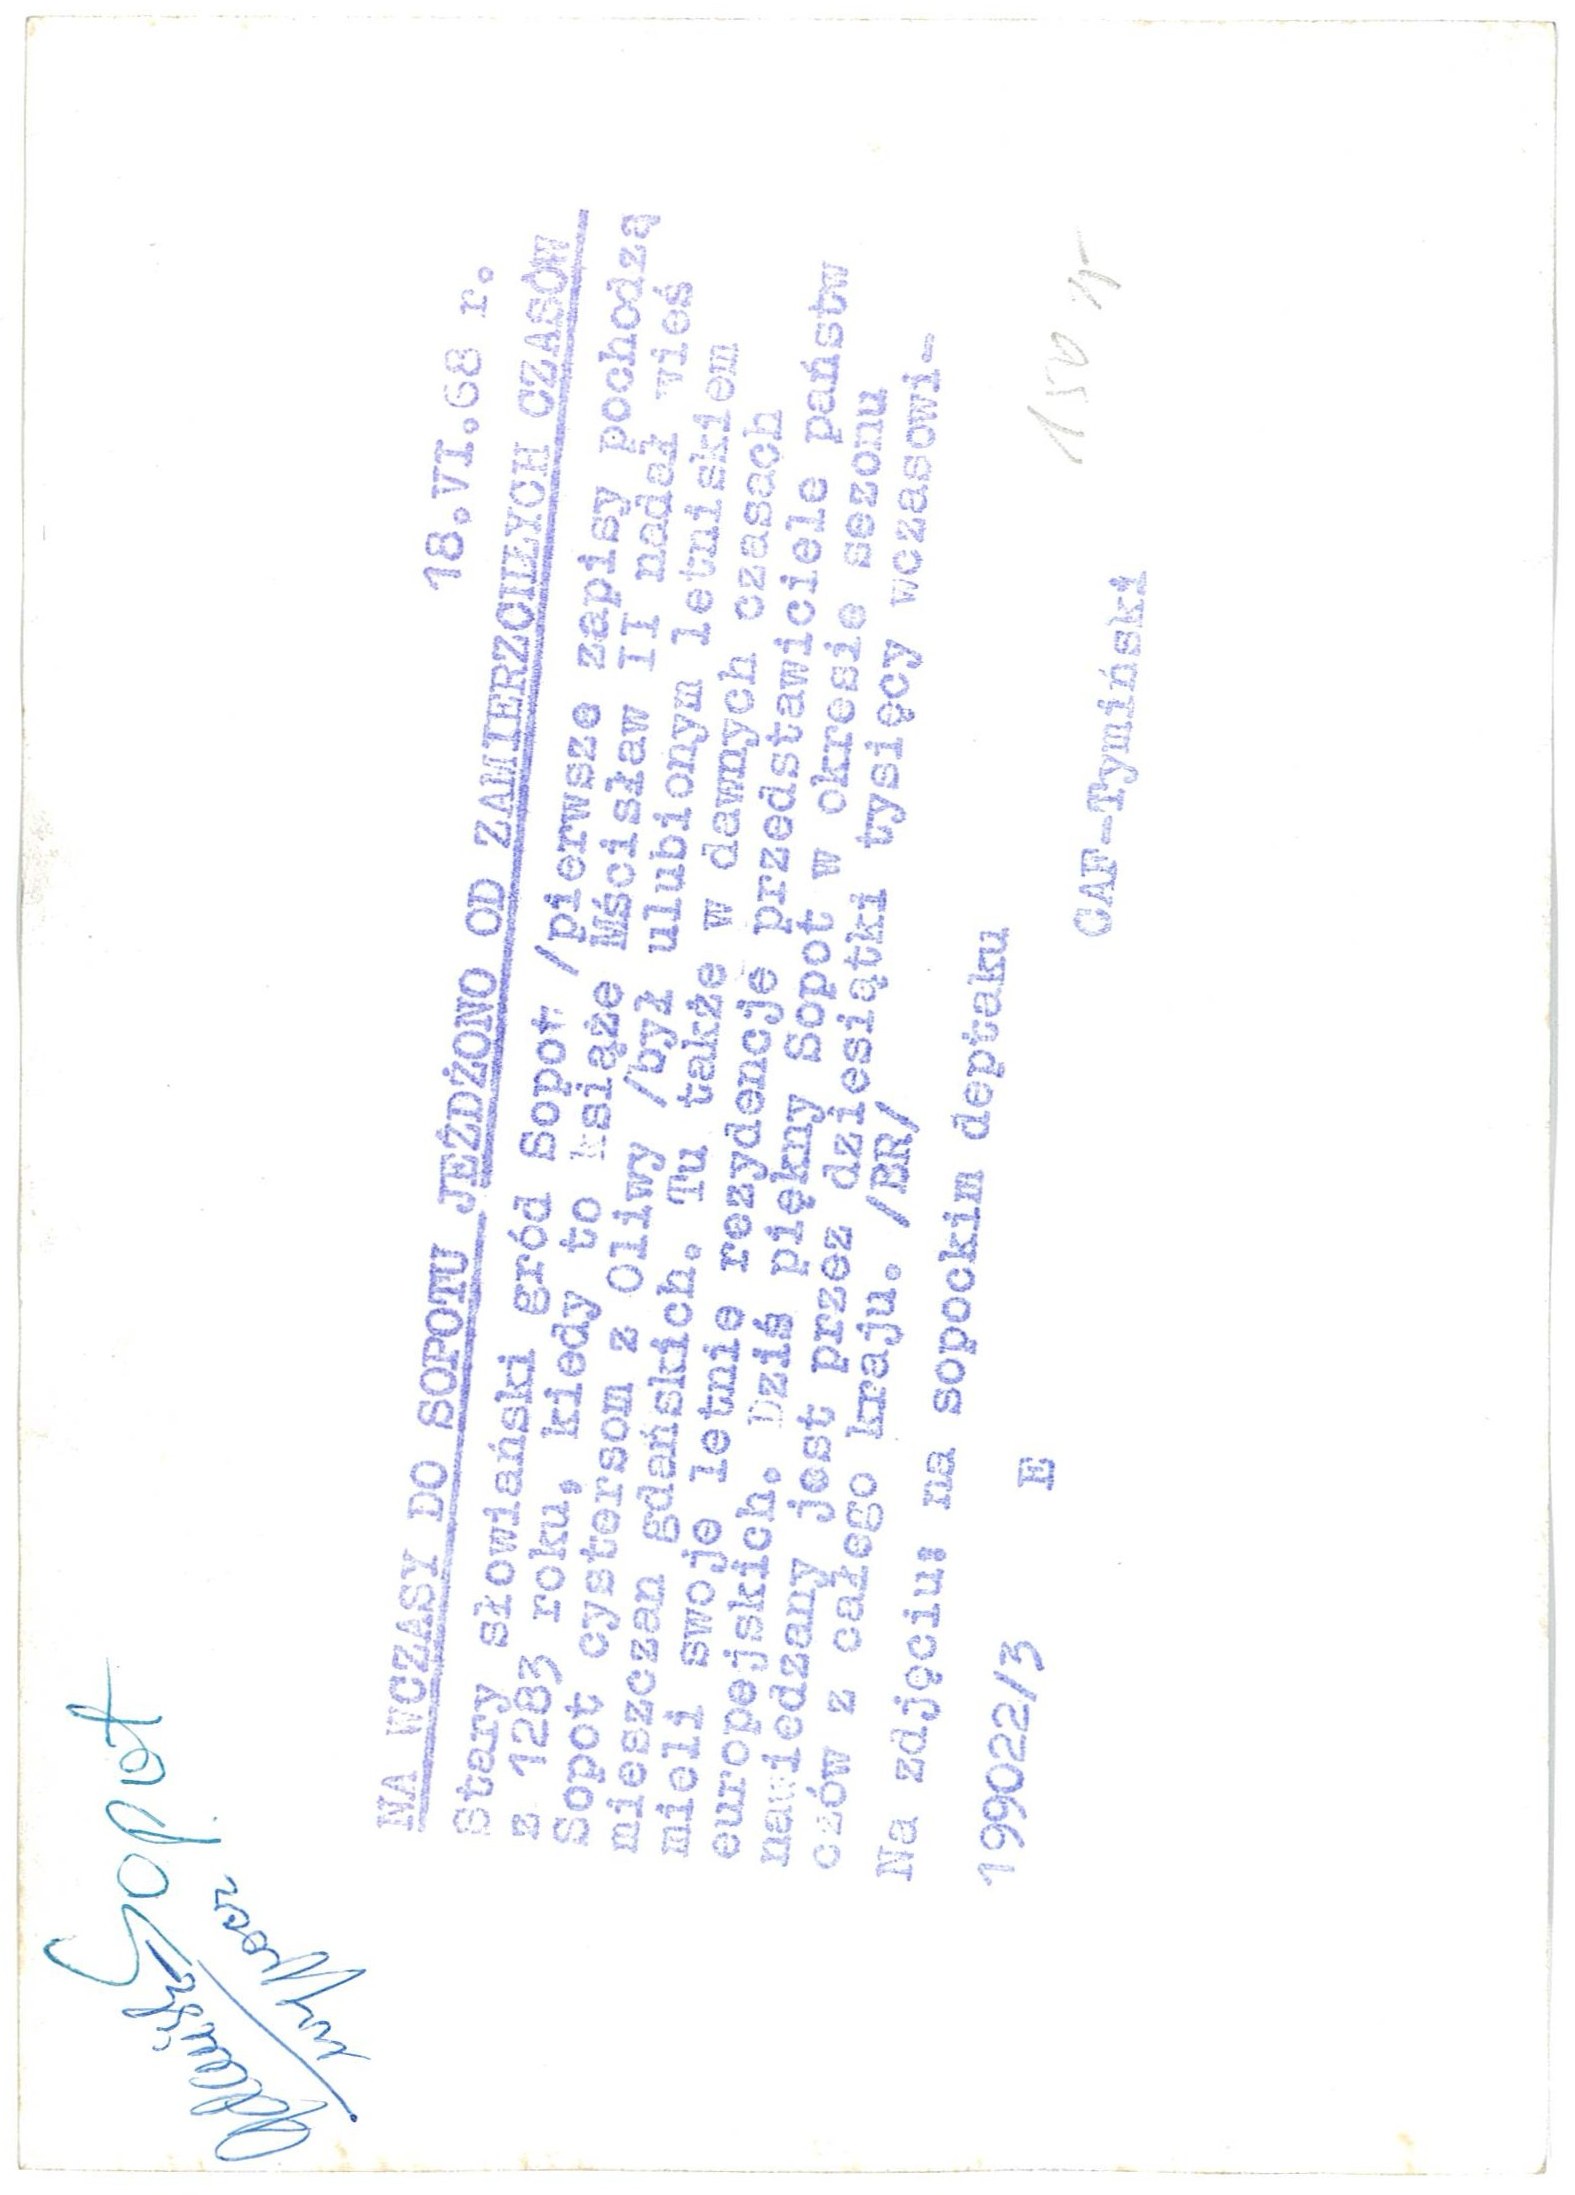 Sopot
18.VI.68 r.
NA WCZASY DO SOPOTU JEŻDŻONO OD ZAMIERZCHŁYCH CZASÓW
Stary słowiański gród Sopot /pierwsze zapisy pochodzą
z 1283 roku, kiedy to książe Mścisław II nadał wieś
Sopot cystersom z Oliwy /był ulubionym letniskiem
mieszczan gdańskich. Tu także w dawnych czasach
mieli swoje letnie rezydencje przedstawiciele państw
europejskich. Dziś piękny Sopot w okresie sezonu
nawiedzany jest przez dziesiątki tysięcy wczasowi-
czów z całego kraju. /ER/
Na zdjęciu: na sopockim deptaku
19902/3 E
CAF-Tymiński